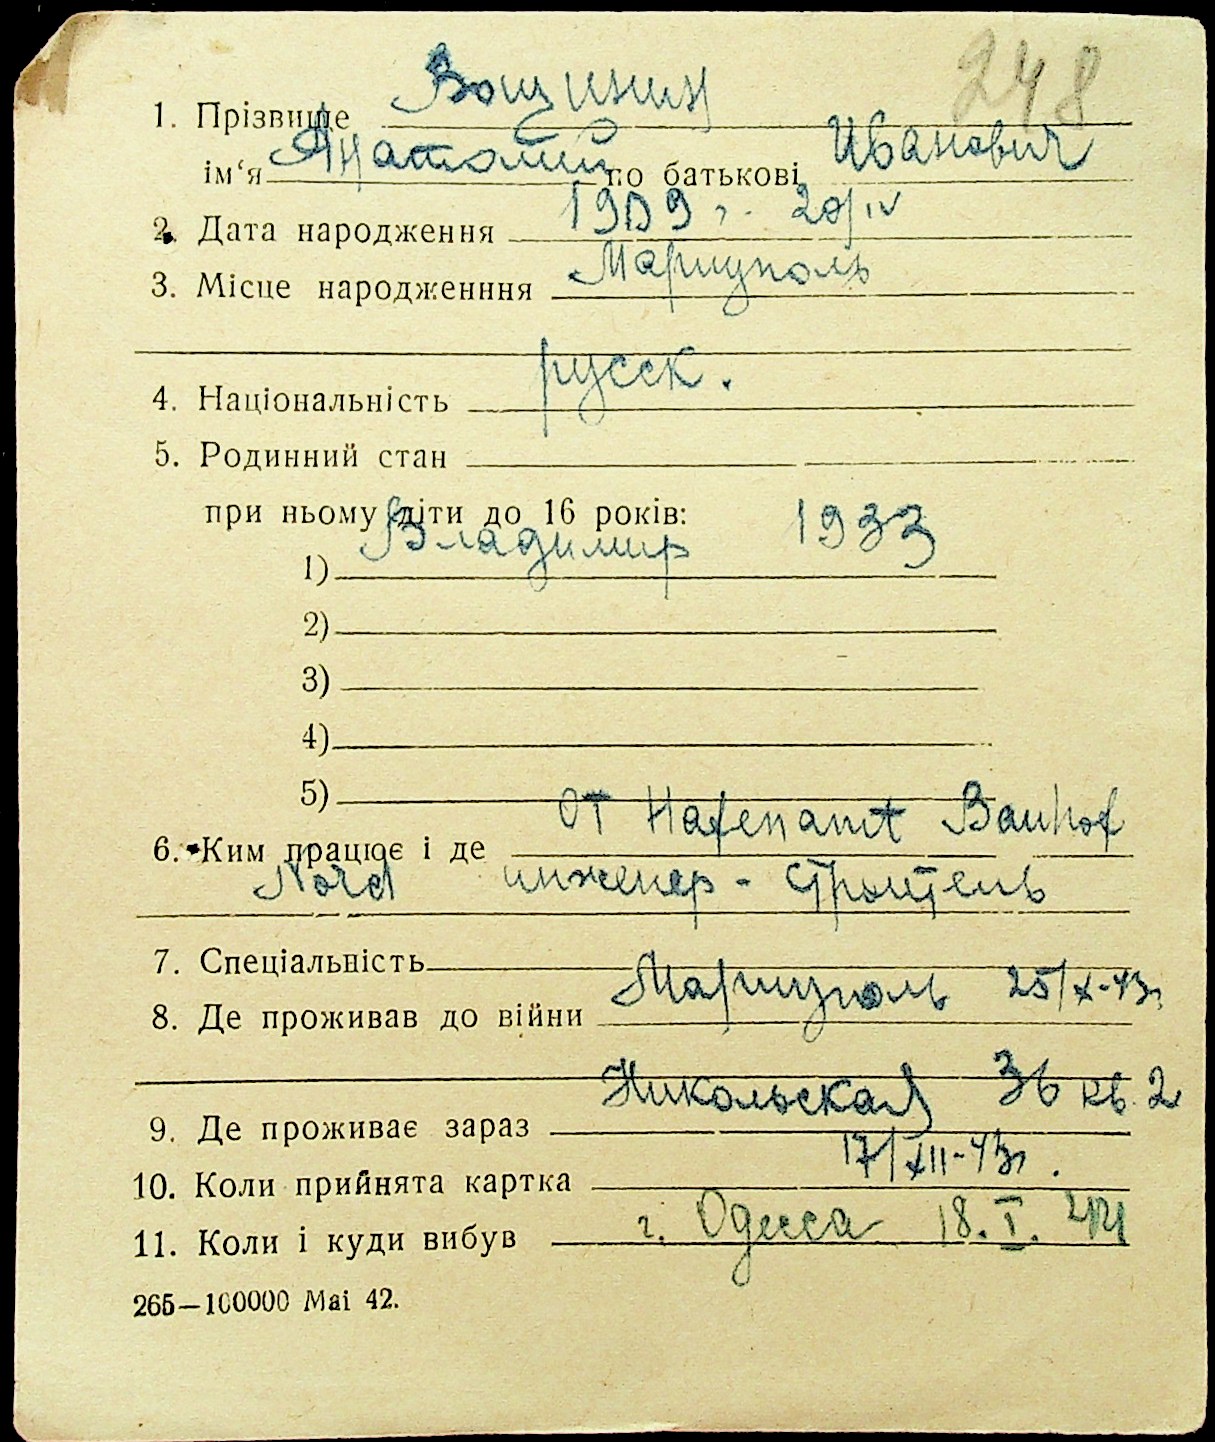 248
1. Прізвище Вощинин
ім‘я Анатолий по батькові Иванович
2. Дата народження 1909 г. 20/IV
3. Місце народженння Мариуполь
4. Національність русск.
5. Родинний стан
при ньому діти до 16 років:
1) Владимир 1933
2)
3)
4)
5)
6. Ким працює і де ОТ Hafenamt Bauhof
Nord инженер - строитель
7. Спеціальність
8. Де проживав до війни Мариуполь 25/X-43г.
9. Де проживає зараз Никольская 36 кв. 2
10. Коли прийнята картка 17/XII-43г.
11. Коли і куди вибув г. Одесса 18.I.44
265—100000 Mai 42.